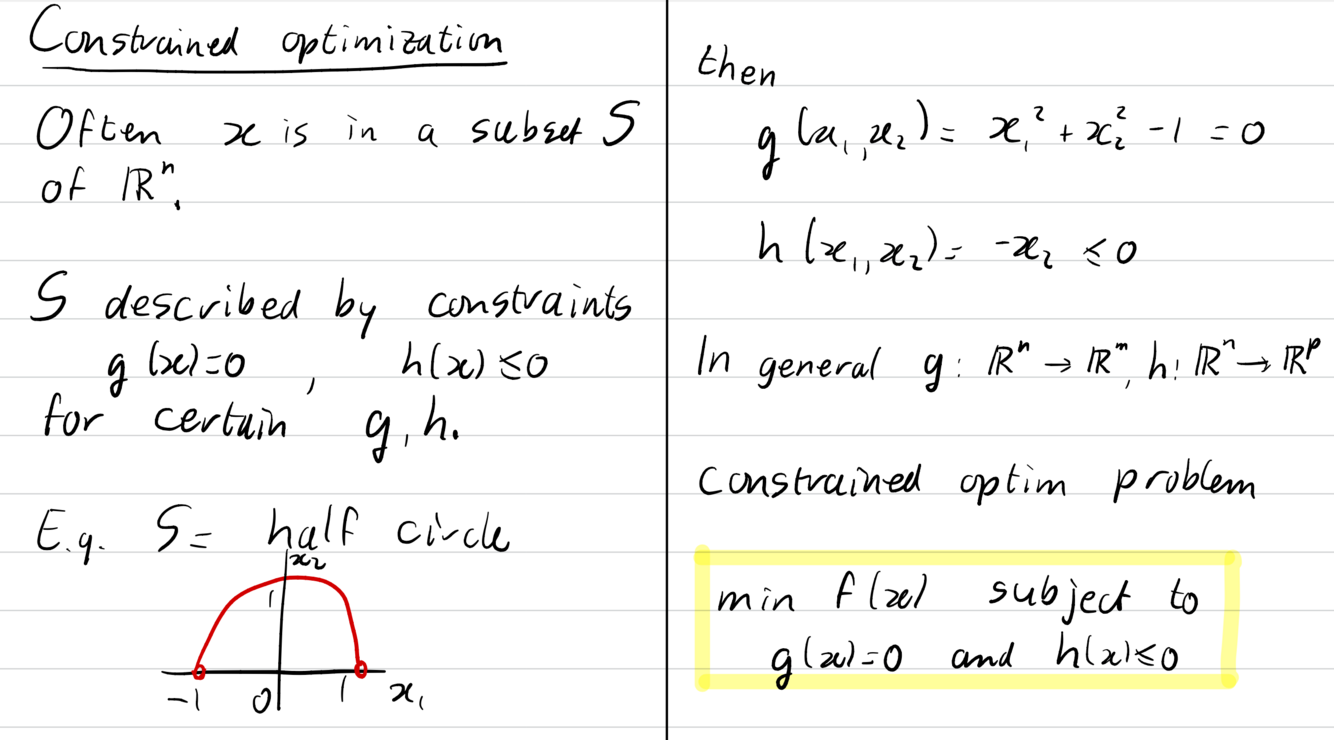 Constrained optimization
Often x is in a subset S
of ℝⁿ.
S described by constraints
g(x)=0 , h(x)≤0
for certain g, h.
E.g. S= half circle
x₂
1
-1 0 1 x₁
then
g(x₁,x₂)= x₁²+x₂²-1=0
h(x₁,x₂)= -x₂ ≤0
In general g: ℝⁿ→ℝᵐ, h: ℝⁿ→ℝᵖ
constrained optim problem
min f(x) subject to
g(x)=0 and h(x)≤0